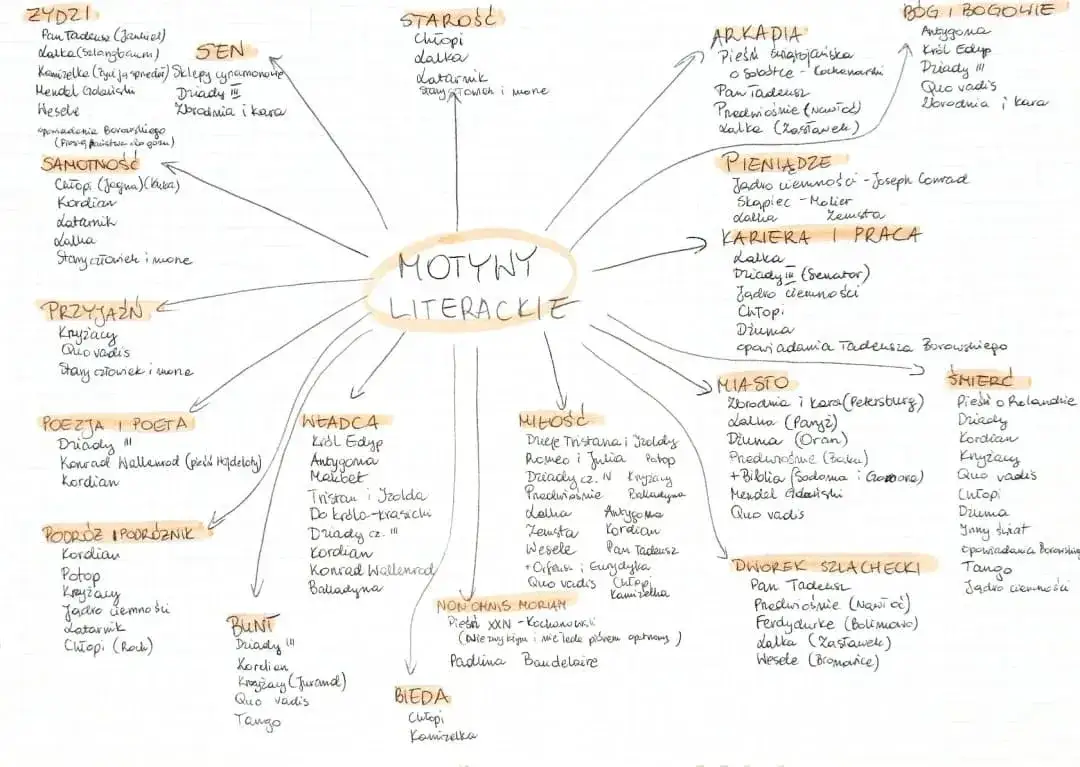 ŻYDZI
Pan Tadeusz (Jankiel)
Lalka (Szlangbaum)
Kamizelka (Żyd ją sprzedał)
Mendel Gdański
Wesele
opowiadania Borowskiego
(Proszę państwa do gazu)
SEN
Sklepy cynamonowe
Dziady III
Zbrodnia i kara
STAROŚĆ
Chłopi
Lalka
Latarnik
Stary człowiek i morze
ARKADIA
Pieśń świętojańska
o Sobótce - Kochanowski
Pan Tadeusz
Przedwiośnie (Nawłoć)
Lalka (Zasławek)
BÓG I BOGOWIE
Antygona
Król Edyp
Dziady III
Quo vadis
Zbrodnia i kara
SAMOTNOŚĆ
Chłopi (Jagna) (Kuba)
Kordian
Latarnik
Lalka
Stary człowiek i morze
PIENIĄDZE
Jądro ciemności - Joseph Conrad
Skąpiec - Molier
Lalka Zemsta
KARIERA I PRACA
Lalka
Dziady III (Senator)
Jądro ciemności
Chłopi
Dżuma
opowiadania Tadeusza Borowskiego
MOTYWY
LITERACKIE
PRZYJAŹŃ
Krzyżacy
Quo vadis
Stary człowiek i morze
POEZJA I POETA
Dziady III
Konrad Wallenrod (pieśń Hajdeloty)
Kordian
PODRÓŻ I PODRÓŻNIK
Kordian
Potop
Krzyżacy
Jądro ciemności
Latarnik
Chłopi (Roch)
BUNT
Dziady III
Kordian
Krzyżacy (Jurand)
Quo vadis
Tango
WŁADCA
Król Edyp
Antygona
Makbet
Tristan i Izolda
Do króla - Krasicki
Dziady cz. III
Kordian
Konrad Wallenrod
Balladyna
BIEDA
Chłopi
Kamizelka
NON OMNIS MORIAR
Pieśń XXIV - Kochanowski
(Niezwykłym i nie leda piórem opatrzony)
Padlina Baudelaire
MIŁOŚĆ
Dzieje Tristana i Izoldy
Romeo i Julia Potop
Dziady cz. IV Krzyżacy
Przedwiośnie Balladyna
Lalka Antygona
Zemsta Kordian
Wesele Pan Tadeusz
+ Orfeusz i Eurydyka
Quo vadis Chłopi
Kamizelka
MIASTO
Zbrodnia i kara (Petersburg)
Lalka (Paryż)
Dżuma (Oran)
Przedwiośnie (Baku)
+ Biblia (Sodoma i Gomora)
Mendel Gdański
Quo vadis
DWOREK SZLACHECKI
Pan Tadeusz
Przedwiośnie (Nawłoć)
Ferdydurke (Bolimowo)
Lalka (Zasławek)
Wesele (Bronowice)
ŚMIERĆ
Pieśń o Rolandzie
Dziady
Kordian
Krzyżacy
Quo vadis
Chłopi
Dżuma
Inny świat
opowiadania Borowskieg
Tango
Jądro ciemności